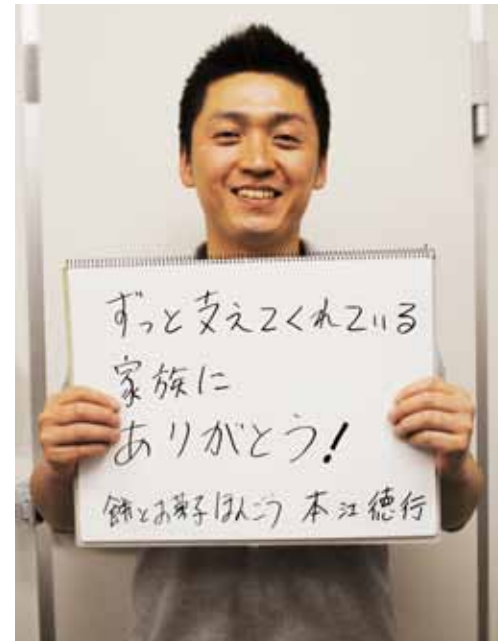 ずっと支えてくれている
家族に
ありがとう!
餅とお菓子ほんごう 本江徳行